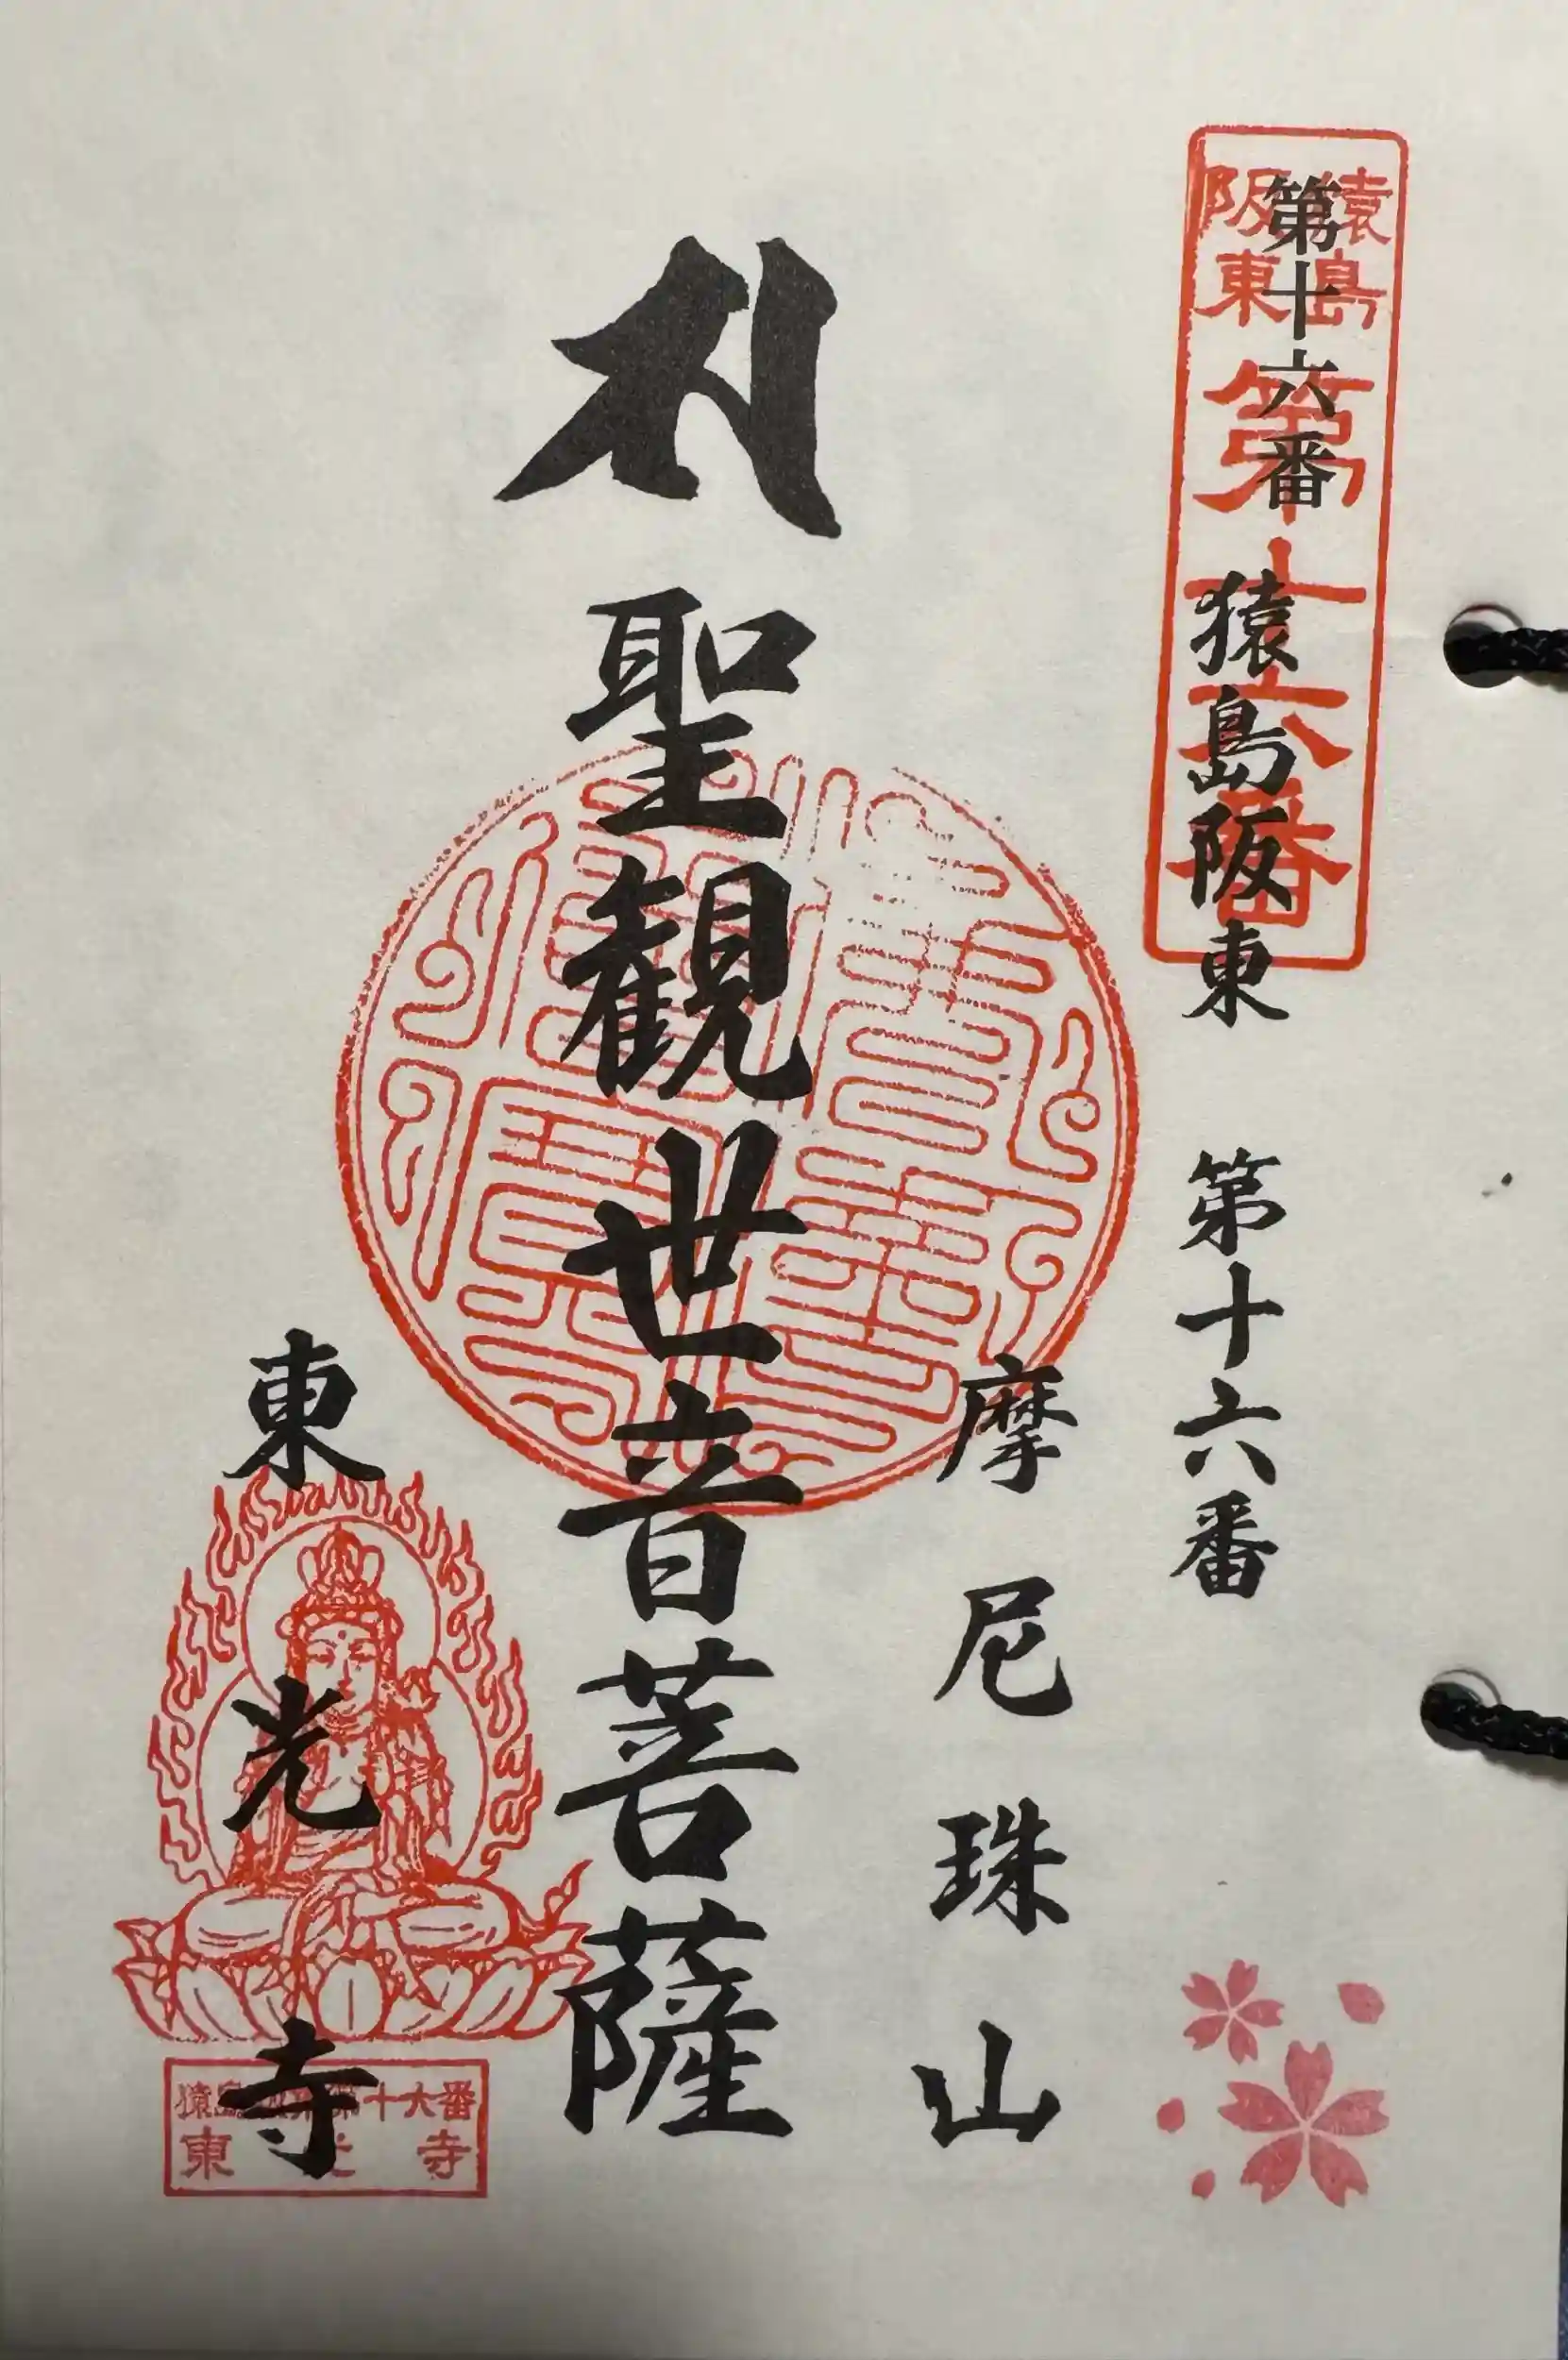 第十六番
猿島阪東 第十六番
猿島
阪東
第十六番
摩尼珠山
聖観世音菩薩
東光寺
猿島阪東第十六番
東光寺